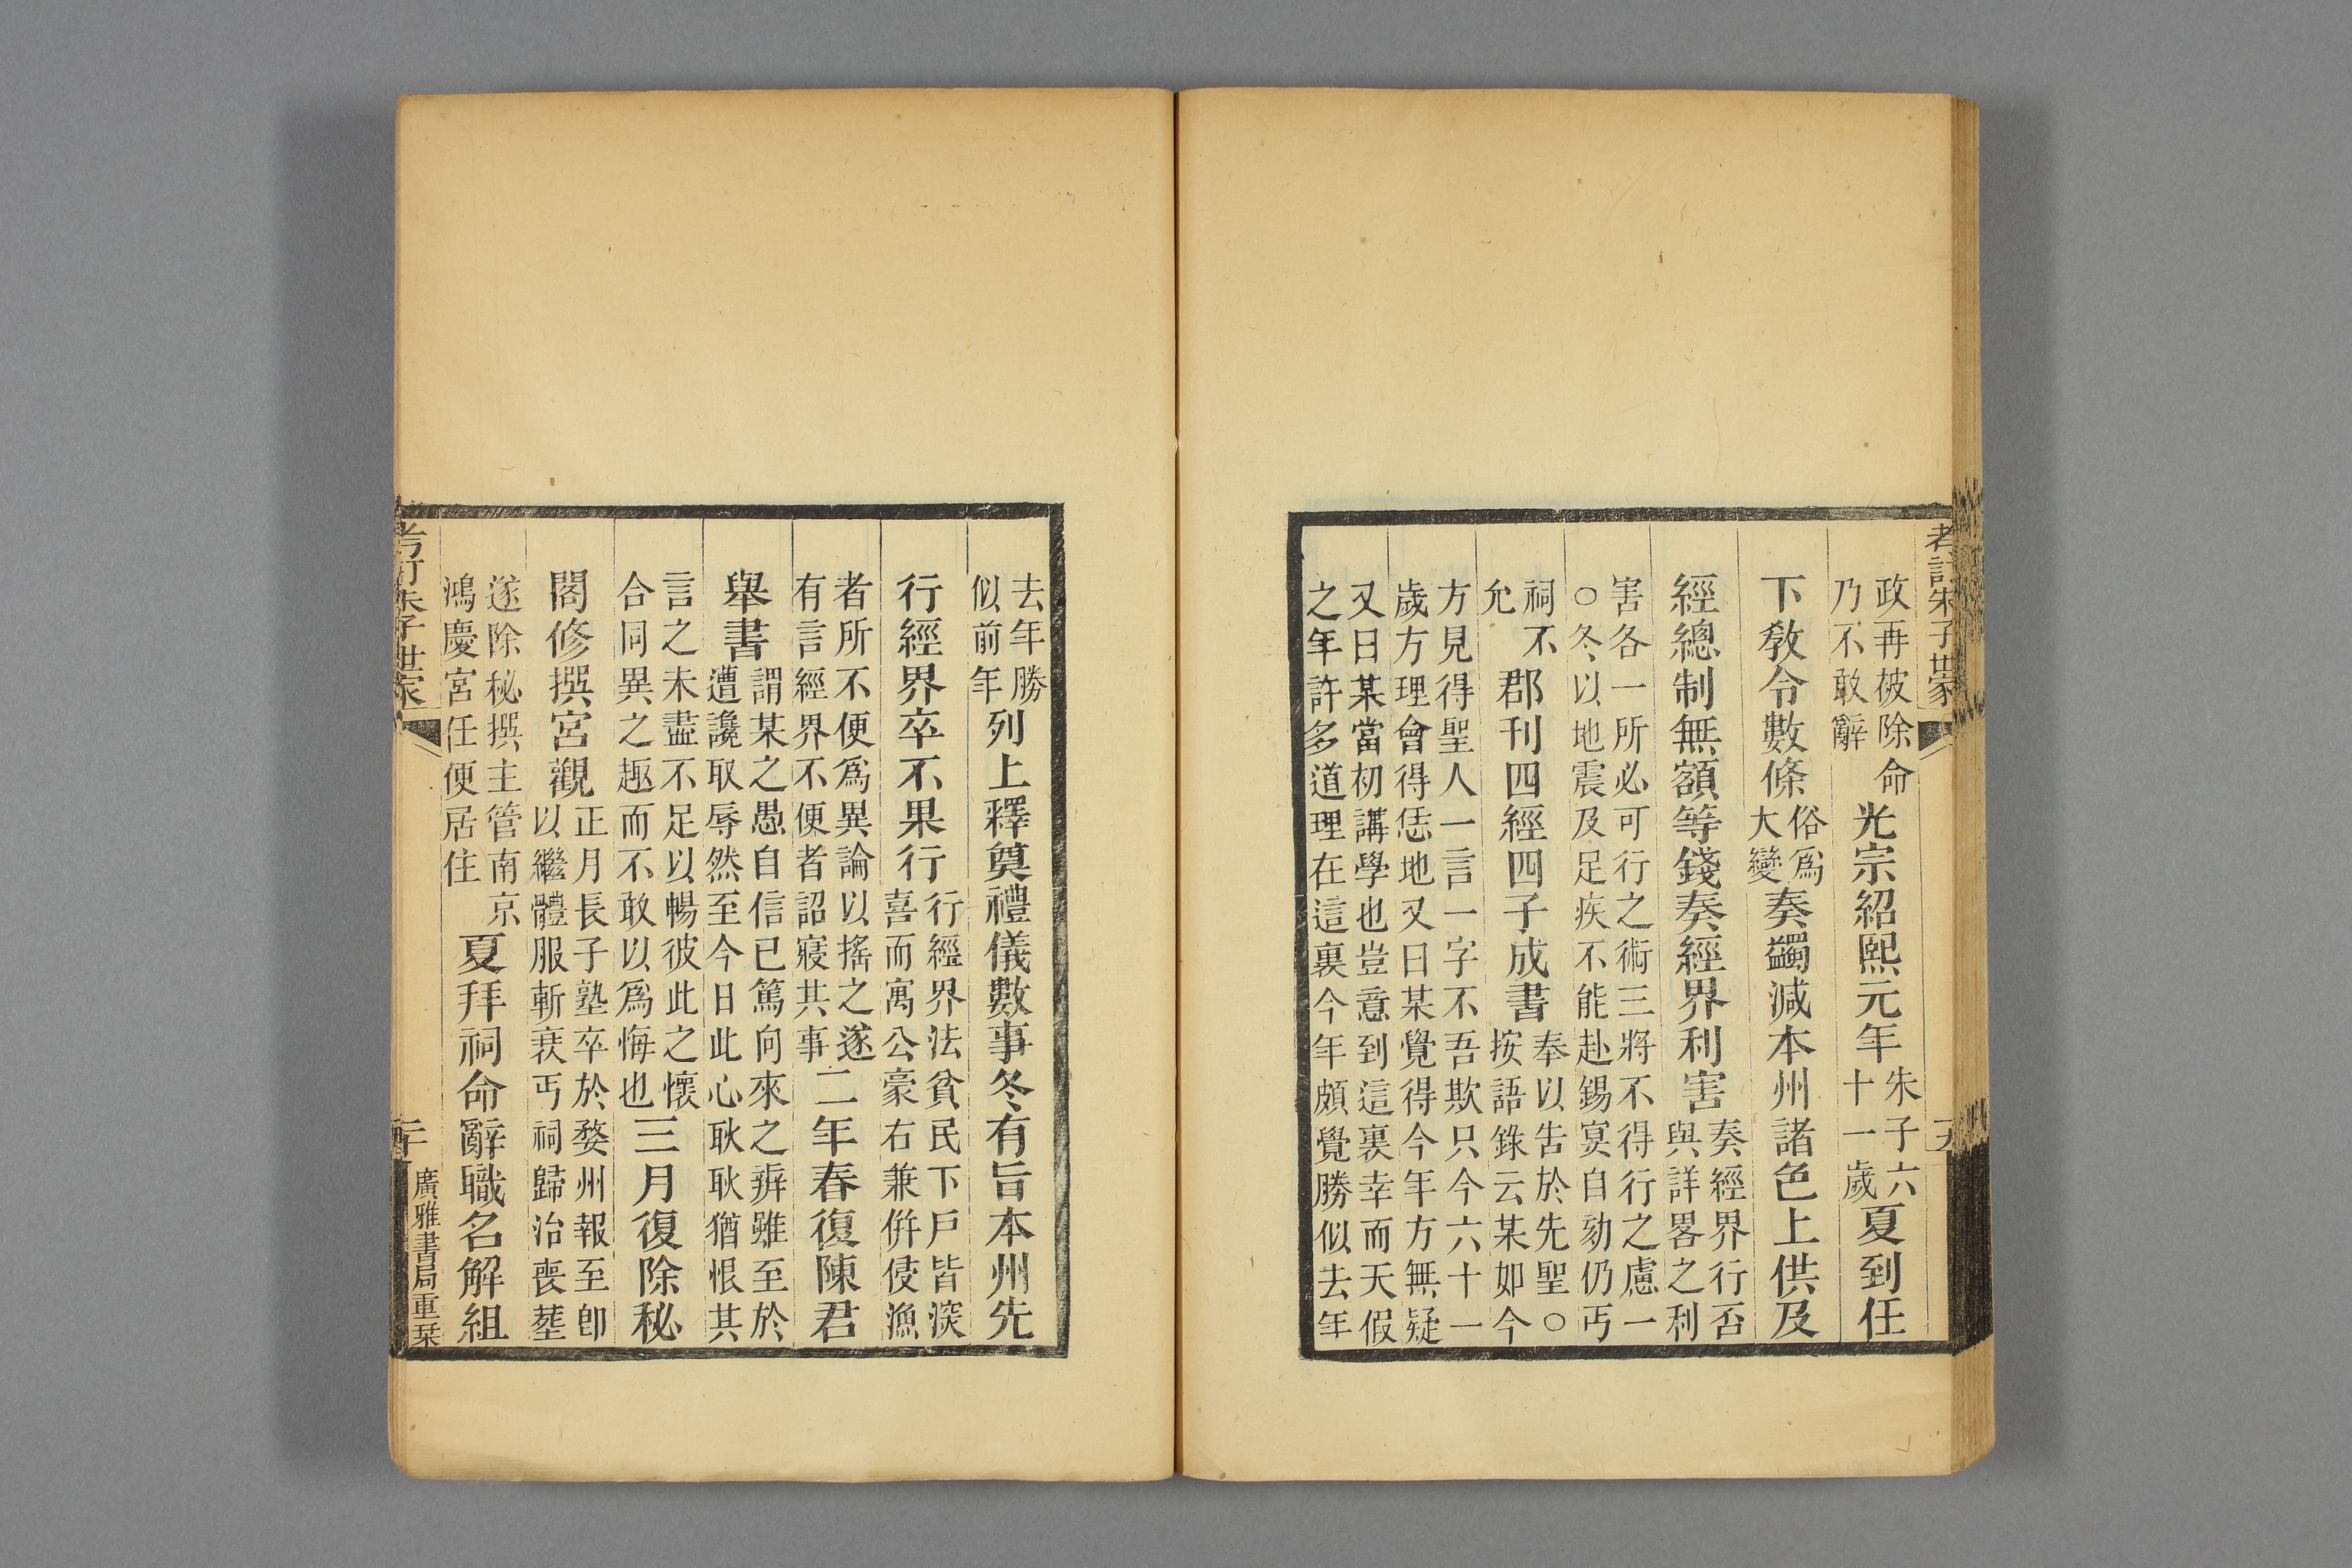 考訂朱子世家
政再被除命乃不敢辭光宗紹熙元年朱子六十一歲夏到任
下敎令數條俗爲大變奏蠲減本州諸色上供及
經總制無額等錢奏經界利害奏經界行否與詳畧之利
害各一所必可行之術三將不得行之慮一○冬以地震及足疾不能赴錫宴自劾仍丐
祠不允郡刊四經四子成書奉以告於先聖○按語錄云某如今
方見得聖人一言一字不吾欺只今六十一歲方理會得恁地又曰某覺得今年方無疑
又曰某當初講學也豈意到這裏幸而天假之年許多道理在這裏今年頗覺勝似去年
去年勝似前年列上釋奠禮儀數事冬有旨本州先
行經界卒不果行行經界法貧民下戶皆深喜而寓公豪右兼併侵漁
者所不便爲異論以搖之遂有言經界不便者詔寢其事二年春復陳君
舉書謂某之愚自信已篤向來之辨雖至於遭讒取辱然至今日此心耿耿猶恨其
言之未盡不足以暢彼此之懷合同異之趣而不敢以爲悔也三月復除秘
閣修撰宮觀正月長子塾卒於婺州報至卽以繼體服斬衰丐祠歸治喪葬
遂除秘撰主管南京鴻慶宮任便居住夏拜祠命辭職名解組
考訂朱子世家
二十
廣雅書局重栞